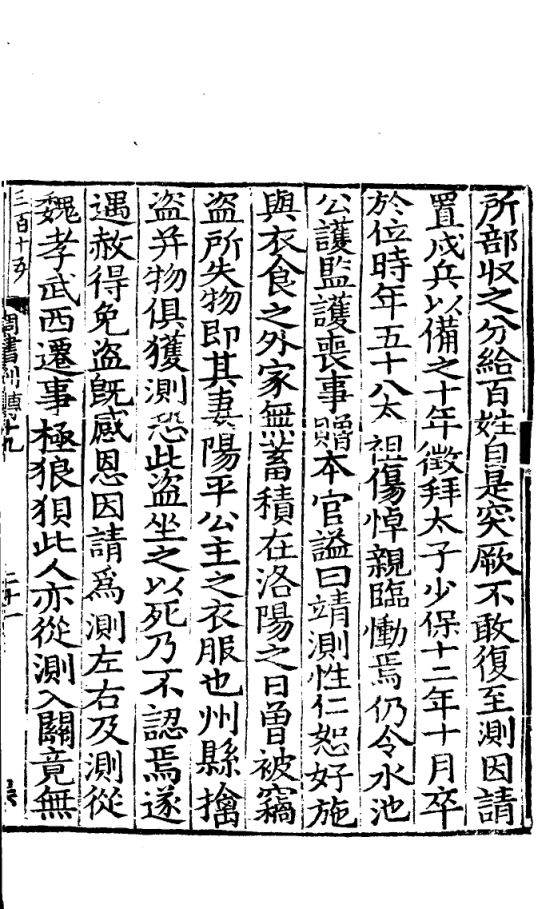 所部收之分給百姓自是突厥不敢復至測因請
置戍兵以備之十年徵拜太子少保十二年十月卒
於位時年五十八太祖傷悼親臨慟焉仍令水池
公護監護喪事贈本官謚曰靖測性仁恕好施
與衣食之外家無蓄積在洛陽之日曽被竊
盗所失物即其妻陽平公主之衣服也州縣擒
盗并物俱獲測恐此盗坐之以死乃不認焉遂
遇赦得免盗旣感恩因請爲測左右及測從
魏孝武西遷事極狼狽此人亦從測入關竟無
三百十
周書列傳十九
二十一